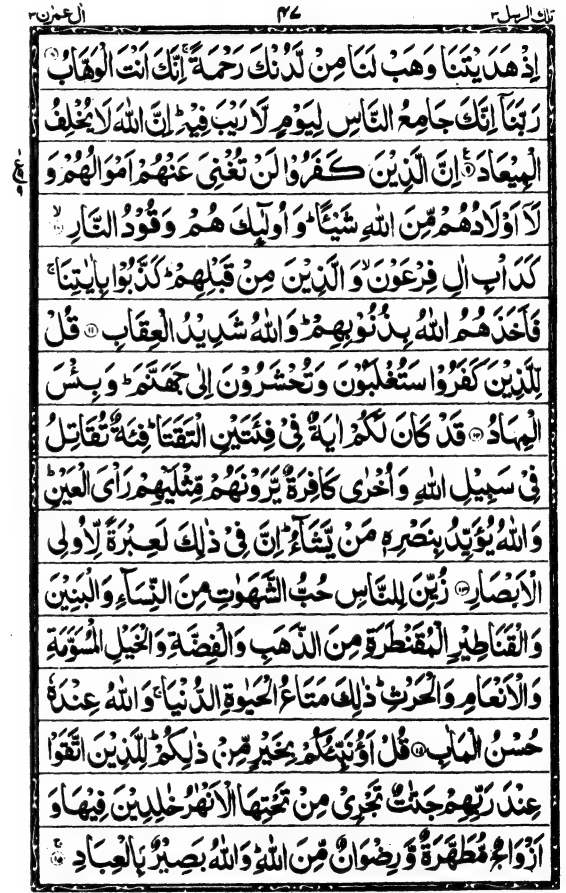 تلك الرسل ٣ ٤٧ اٰل عمرٰن ٣
اِذْ هَدَيْتَنَا وَهَبْ لَنَا مِنْ لَّدُنْكَ رَحْمَةً ۚ اِنَّكَ اَنْتَ الْوَهَّابُ ﴿۸﴾
رَبَّنَآ اِنَّكَ جَامِعُ النَّاسِ لِيَوْمٍ لَّا رَيْبَ فِيْهِ ؕ اِنَّ اللّٰهَ لَا يُخْلِفُ
الْمِيْعَادَ ﴿۹﴾ اِنَّ الَّذِيْنَ كَفَرُوْا لَنْ تُغْنِيَ عَنْهُمْ اَمْوَالُهُمْ وَ
لَآ اَوْلَادُهُمْ مِّنَ اللّٰهِ شَيْئًا ؕ وَ اُولٰٓئِكَ هُمْ وَقُوْدُ النَّارِ ﴿۱۰﴾ ۙ
كَدَاْبِ اٰلِ فِرْعَوْنَ ۙ وَ الَّذِيْنَ مِنْ قَبْلِهِمْ ؕ كَذَّبُوْا بِاٰيٰتِنَا ۚ
فَاَخَذَهُمُ اللّٰهُ بِذُنُوْبِهِمْ ؕ وَاللّٰهُ شَدِيْدُ الْعِقَابِ ﴿۱۱﴾ قُلْ
لِّلَّذِيْنَ كَفَرُوْا سَتُغْلَبُوْنَ وَتُحْشَرُوْنَ اِلٰى جَهَنَّمَ ؕ وَ بِئْسَ
الْمِهَادُ ﴿۱۲﴾ قَدْ كَانَ لَكُمْ اٰيَةٌ فِيْ فِئَتَيْنِ الْتَقَتَا ؕ فِئَةٌ تُقَاتِلُ
فِيْ سَبِيْلِ اللّٰهِ وَ اُخْرٰى كَافِرَةٌ يَّرَوْنَهُمْ مِّثْلَيْهِمْ رَاْيَ الْعَيْنِ ؕ
وَ اللّٰهُ يُؤَيِّدُ بِنَصْرِهٖ مَنْ يَّشَآءُ ؕ اِنَّ فِيْ ذٰلِكَ لَعِبْرَةً لِّاُولِي
الْاَبْصَارِ ﴿۱۳﴾ زُيِّنَ لِلنَّاسِ حُبُّ الشَّهَوٰتِ مِنَ النِّسَآءِ وَ الْبَنِيْنَ
وَ الْقَنَاطِيْرِ الْمُقَنْطَرَةِ مِنَ الذَّهَبِ وَ الْفِضَّةِ وَ الْخَيْلِ الْمُسَوَّمَةِ
وَ الْاَنْعَامِ وَ الْحَرْثِ ؕ ذٰلِكَ مَتَاعُ الْحَيٰوةِ الدُّنْيَا ۚ وَ اللّٰهُ عِنْدَهٗ
حُسْنُ الْمَاٰبِ ﴿۱۴﴾ قُلْ اَؤُنَبِّئُكُمْ بِخَيْرٍ مِّنْ ذٰلِكُمْ ؕ لِلَّذِيْنَ اتَّقَوْا
عِنْدَ رَبِّهِمْ جَنّٰتٌ تَجْرِيْ مِنْ تَحْتِهَا الْاَنْهٰرُ خٰلِدِيْنَ فِيْهَا وَ
اَزْوَاجٌ مُّطَهَّرَةٌ وَّ رِضْوَانٌ مِّنَ اللّٰهِ ؕ وَ اللّٰهُ بَصِيْرٌ بِالْعِبَادِ ﴿۱۵﴾ ۚ